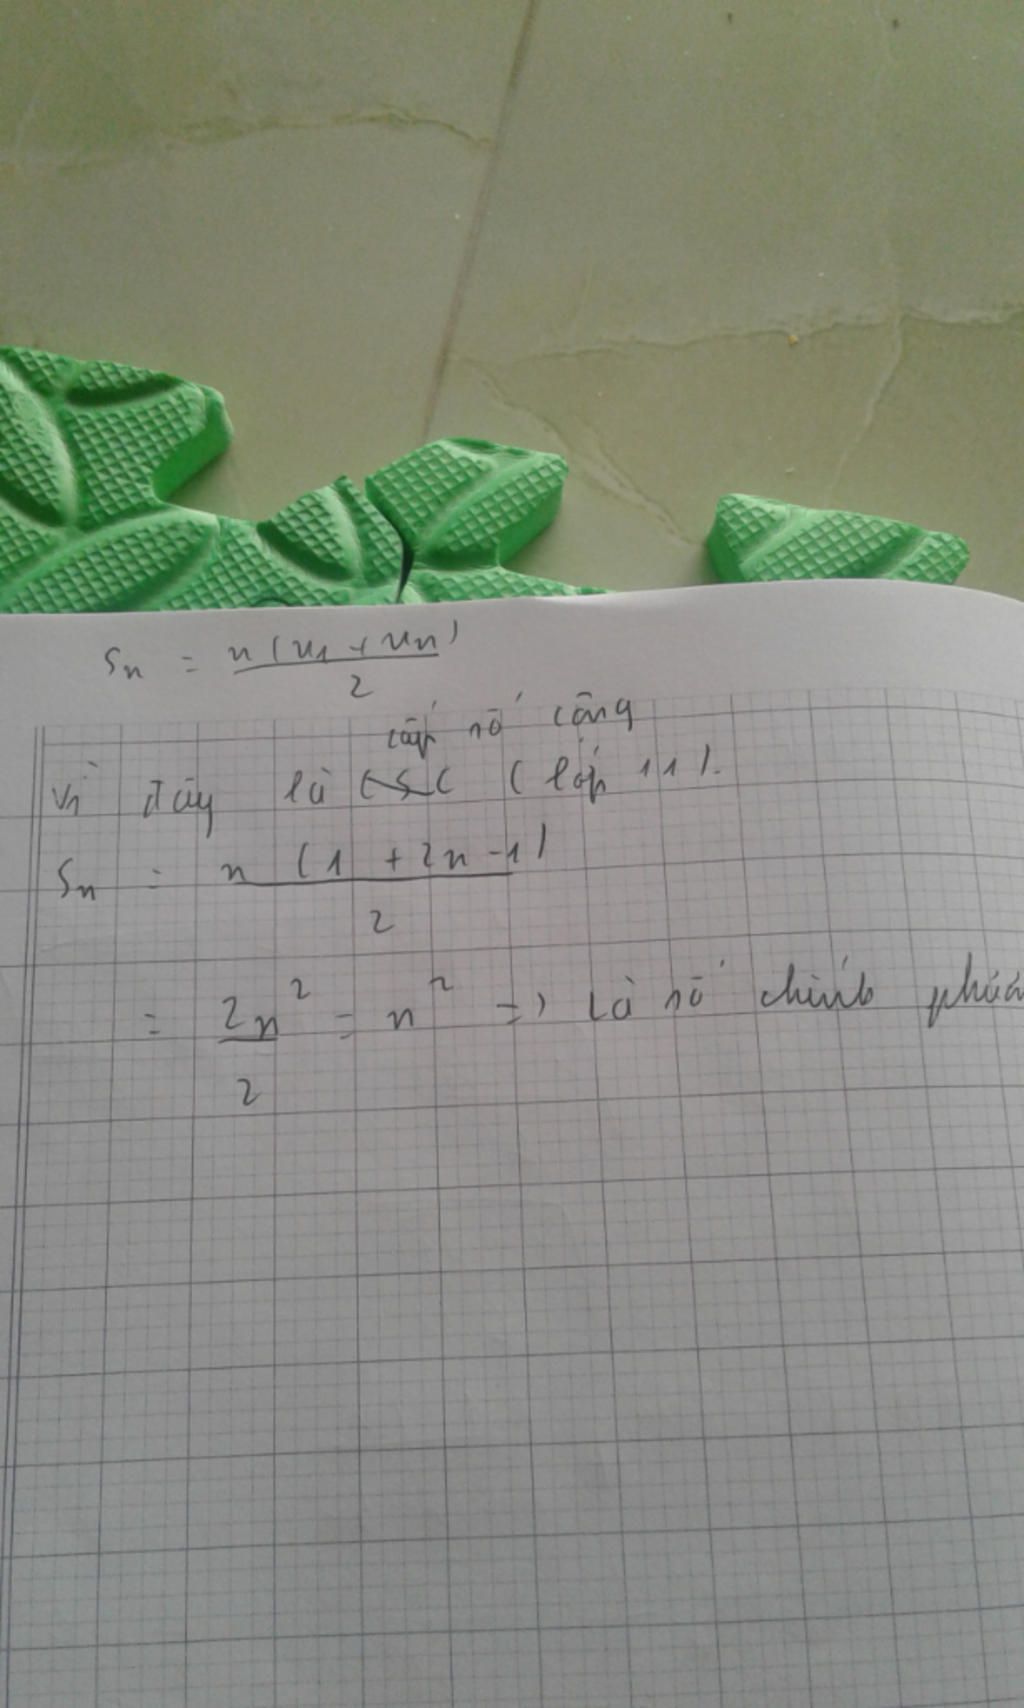 Sn = n(u1 + un)/2
cấp số cộng
Vì đây là CSC (lớp 11).
Sn = n(1 + 2n - 1)/2
= 2n²/2 = n² => Là số chính phươ